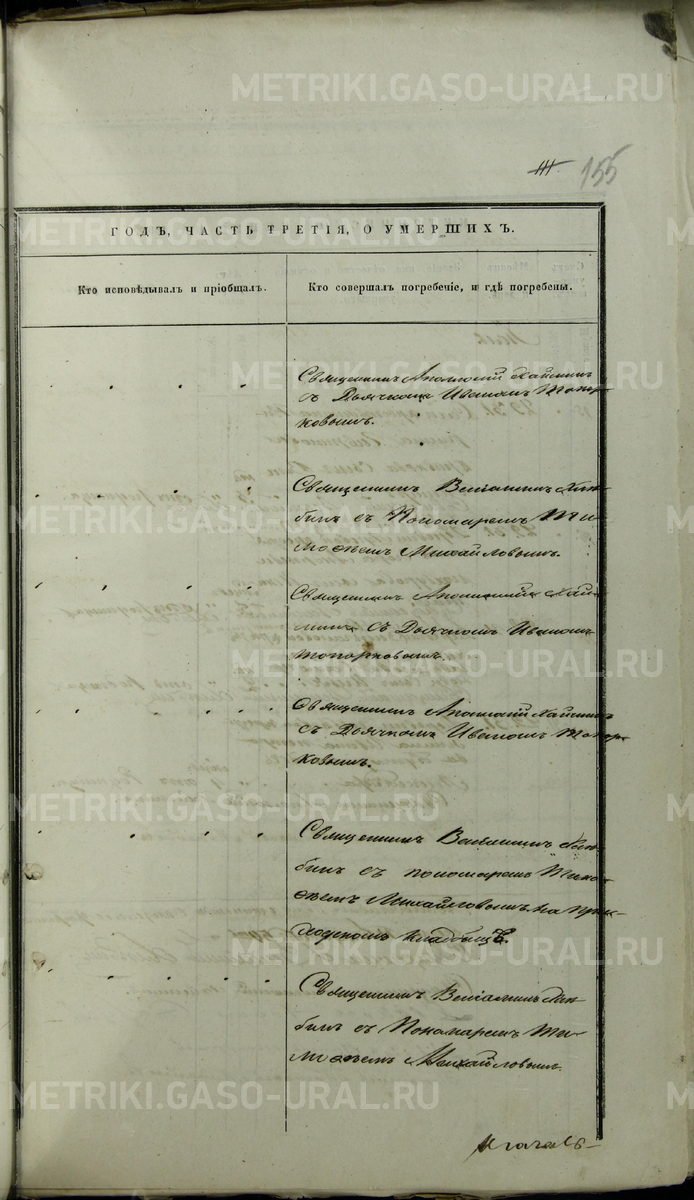 METRIKI.GASO-URAL.RU
155
ГОДѢ, ЧАСТЬ ТРЕТІЯ, О УМЕРШИХЪ.
Кто исповѣдывалъ и пріобщалъ.
Кто совершалъ погребеніе, и гдѣ погребены.
Священникъ
съ Дьячкомъ Иваномъ Топор-
ковымъ.
Священникъ Веніаминъ
бинъ съ Пономаремъ Ти-
моѳеемъ Михайловымъ.
Священникъ
съ Дьячкомъ Иваномъ
Топорковымъ.
Священникъ
съ Дьячкомъ Иваномъ Топор-
ковымъ.
Священникъ Веніаминъ
бинъ съ пономаремъ Тимо-
ѳеемъ Михайловымъ на при-
ходскомъ кладбищѣ.
Священникъ Веніаминъ
бинъ съ Пономаремъ Ти-
моѳеемъ Михайловымъ.